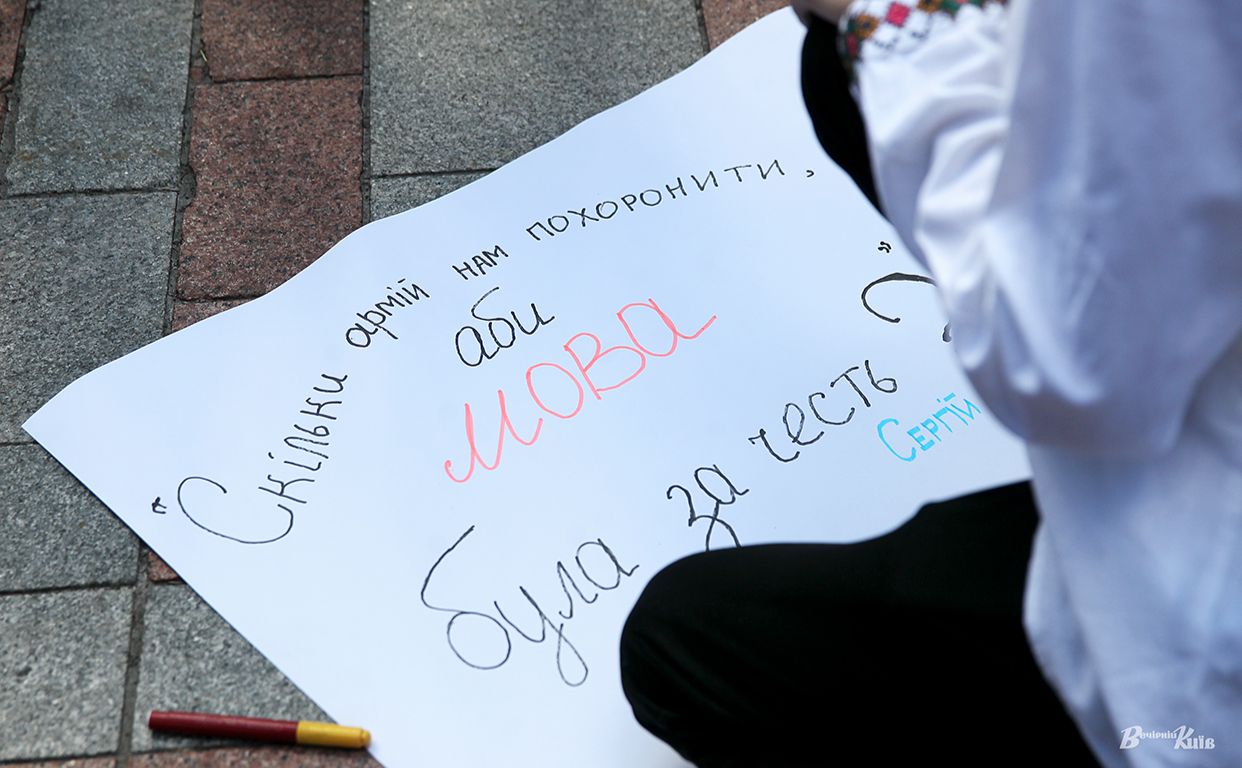 "Скільки армій нам похоронити,
аби
мова
була за честь?"
Сергій
Вечірній Київ